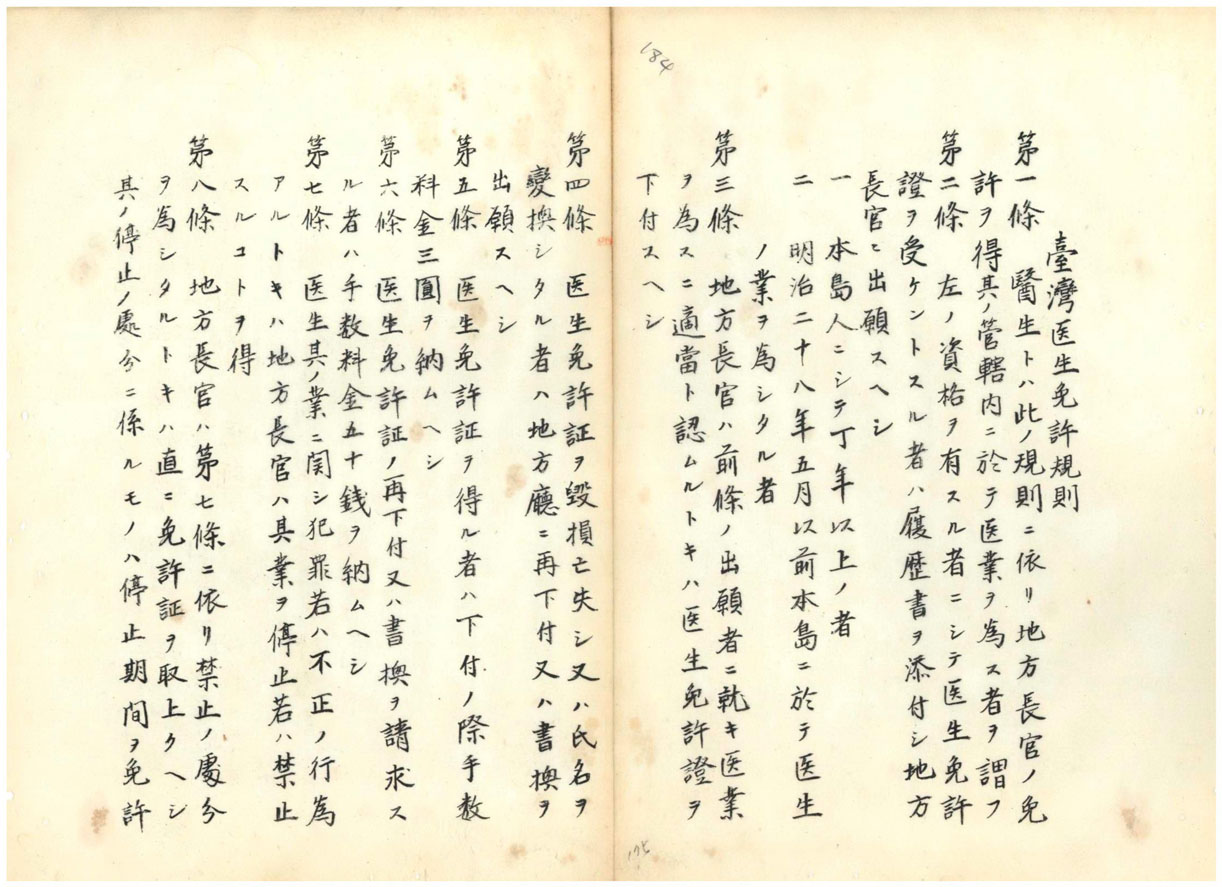 184
臺灣医生免許規則
第一條 醫生トハ此ノ規則ニ依リ地方長官ノ免
許ヲ得其ノ管轄内ニ於テ医業ヲ為ス者ヲ謂フ
第二條 左ノ資格ヲ有スル者ニシテ医生免許
證ヲ受ケントスル者ハ履歴書ヲ添付シ地方
長官ニ出願スヘシ
一 本島人ニシテ丁年以上ノ者
二 明治二十八年五月以前本島ニ於テ医生
ノ業ヲ為シタル者
第三條 地方長官ハ前條ノ出願者ニ就キ医業
ヲ為スニ適當ト認ムルトキハ医生免許證ヲ
下付スヘシ
第四條 医生免許証ヲ毀損亡失シ又ハ氏名ヲ
變換シタル者ハ地方廳ニ再下付又ハ書換ヲ
出願スヘシ
第五條 医生免許証ヲ得ル者ハ下付ノ際手数
料金三圓ヲ納ムヘシ
第六條 医生免許証ノ再下付又ハ書換ヲ請求ス
ル者ハ手数料金五十錢ヲ納ムヘシ
第七條 医生其ノ業ニ関シ犯罪若ハ不正ノ行為
アルトキハ地方長官ハ其業ヲ停止若ハ禁止
スルコトヲ得
第八條 地方長官ハ第七條ニ依リ禁止ノ處分
ヲ為シタルトキハ直ニ免許証ヲ取上クヘシ
其ノ停止ノ處分ニ係ルモノハ停止期間ヲ免許